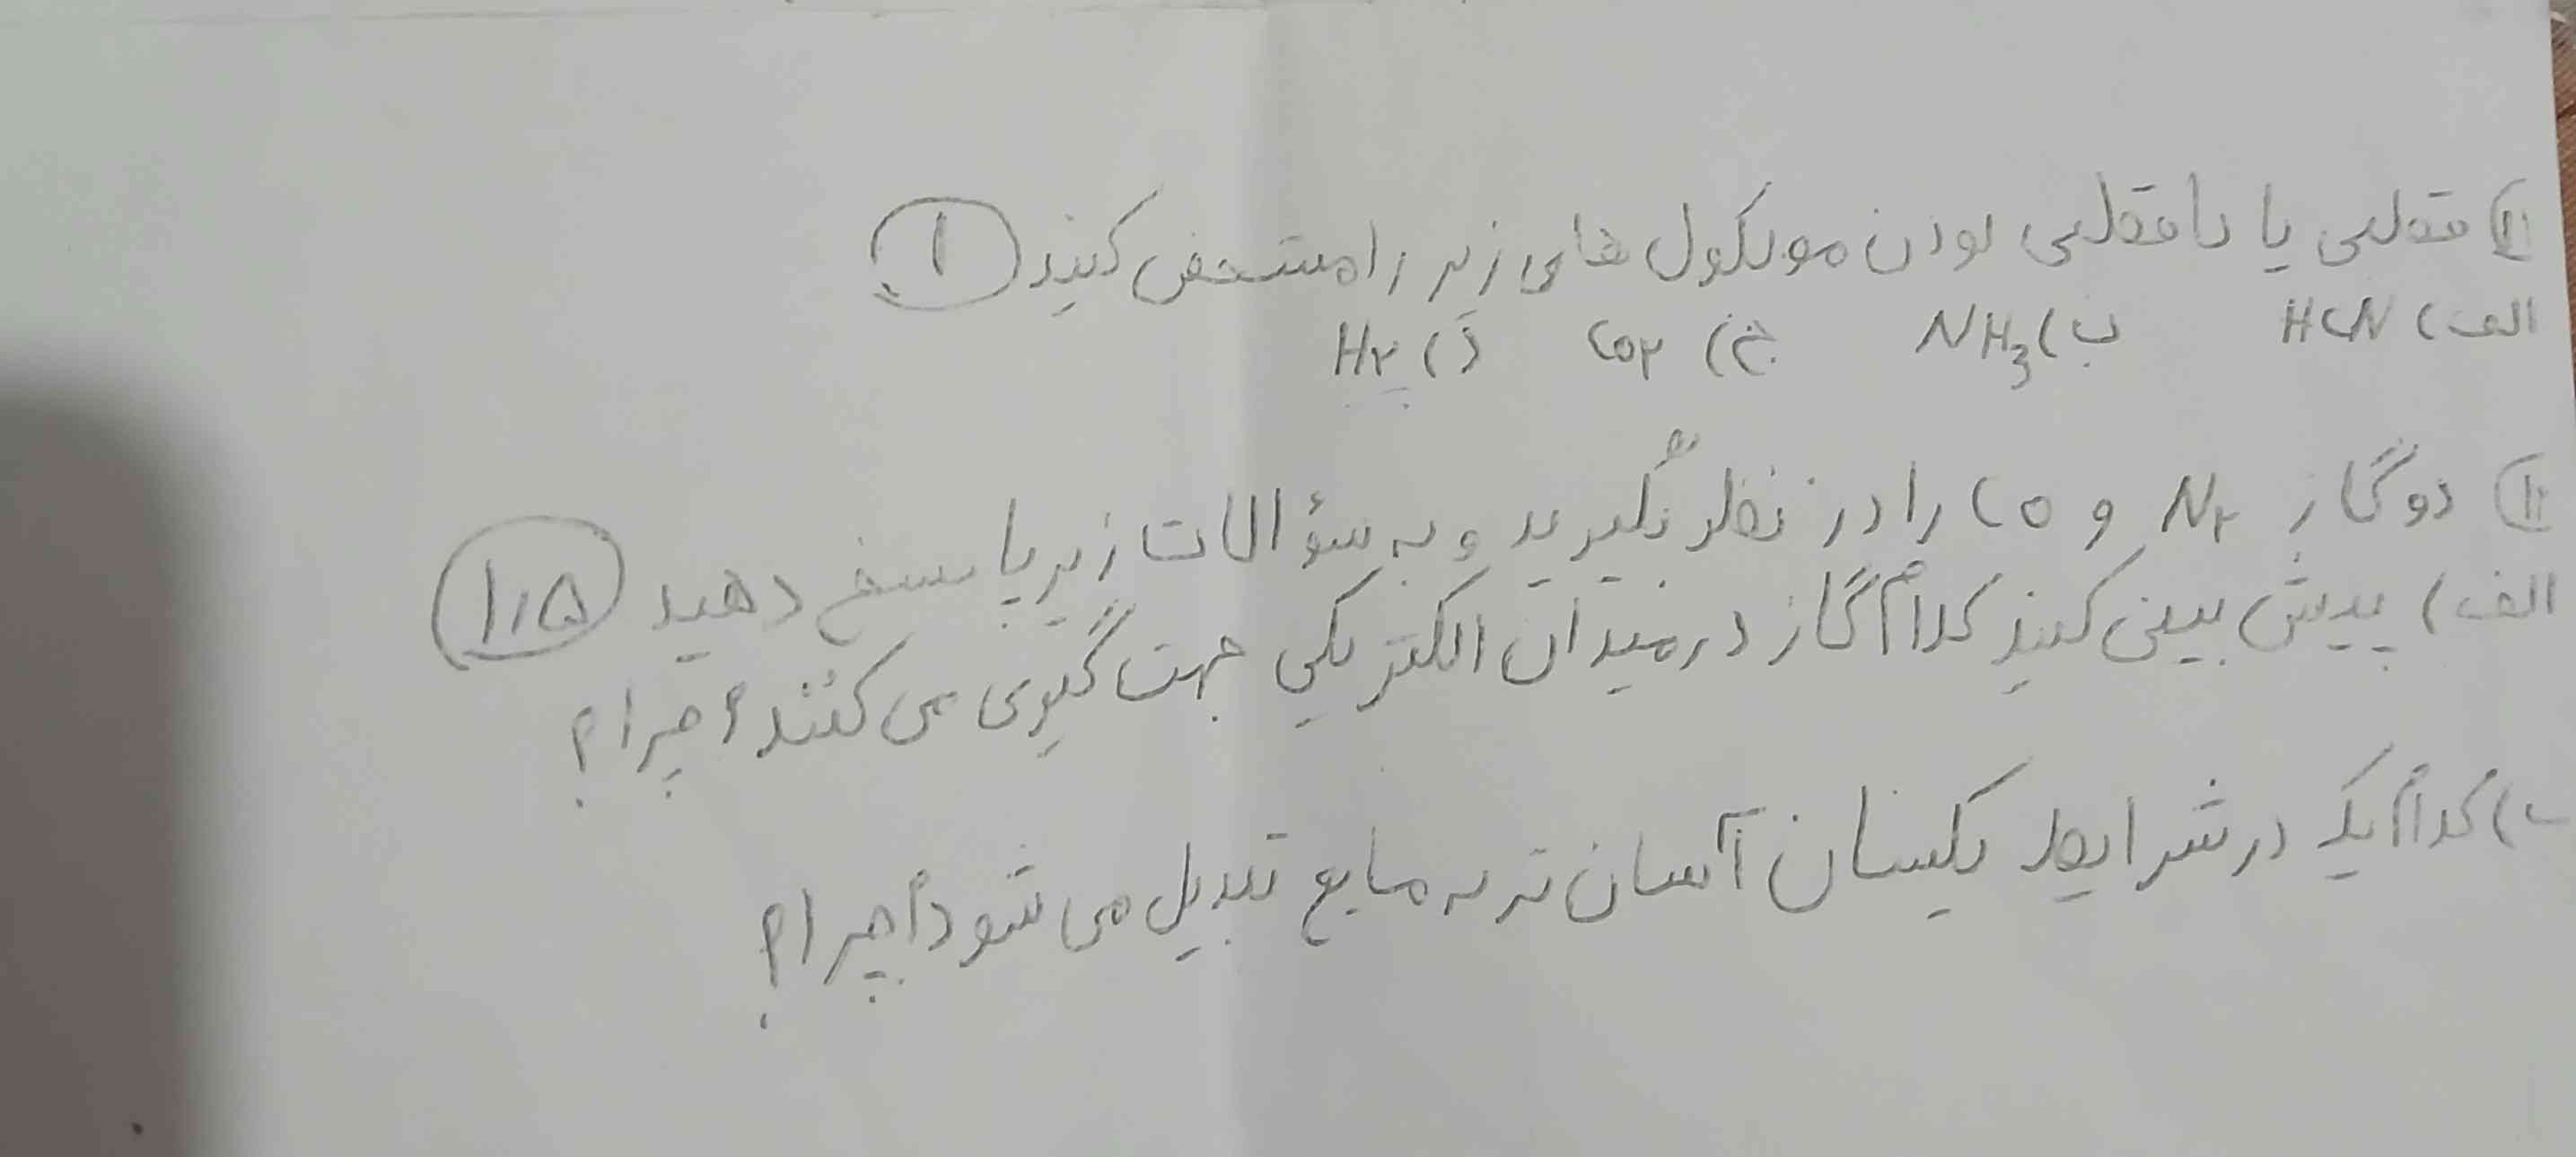 ۱۱) قطبی یا ناقطبی بودن مولکول های زیر را مشخص کنید ۱
الف) HCN ب) NH3 ج) CO۲ د) H۲
۱۱) دو گاز N۲ و CO را در نظر بگیرید و به سؤالات زیر پاسخ دهید ۱،۵
الف) پیش بینی کنید کدام گاز در میدان الکتریکی جهت گیری می کنند؟ چرا؟
ب) کدام یک در شرایط یکسان آسان تر به مایع تبدیل می شود؟ چرا؟